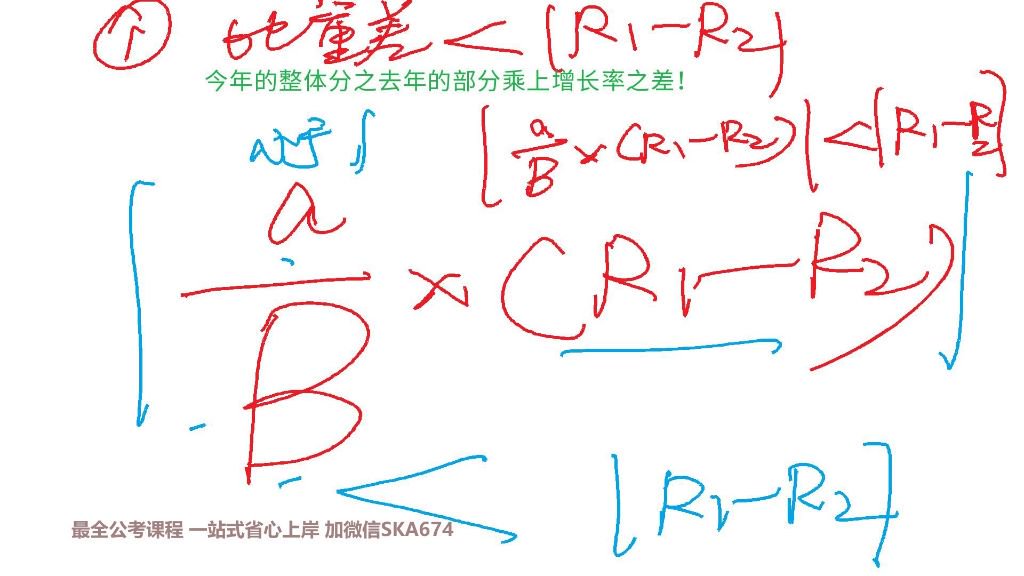 ① 比重差 < |R1-R2|
今年的整体分之去年的部分乘上增长率之差!
|a/B × (R1-R2)| < |R1-R2|
|a/B × (R1-R2)|
< |R1-R2|
最全公考课程 一站式省心上岸 加微信SKA674